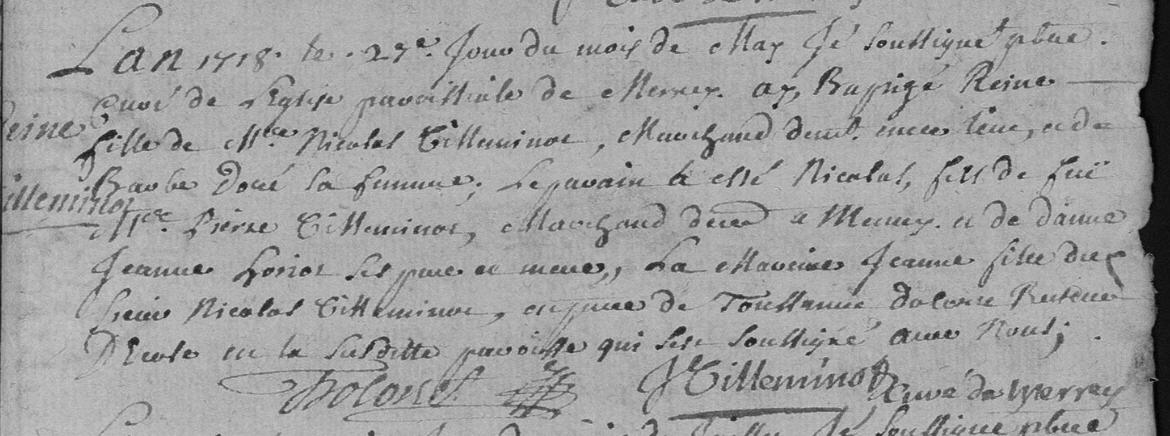 Reine
Tilleminot
Lan 1718. le . 27e. Jour du mois de May Je soussigné ptre.
Curé de LEglise paroissiale de Merrey. ay Baptizé Reine
fille de Me. Nicolas Tilleminot, Marchand demt. en ce lieu, et de
Barbe Doré sa femme; Le parain a esté Nicolas, fils de fui
Me. Pierre Tilleminot, Marchand a Merrey. et de dame
Jeanne Loriot ses pere et mere,, La Mareine Jeanne fille du
Sieur Nicolas Tilleminot, en pnce de Toussainct
DEcole en la susditte paroisse qui sest soussigné avec Nous;
J Tilleminot Curé de Merrey
Je soussigné ptre